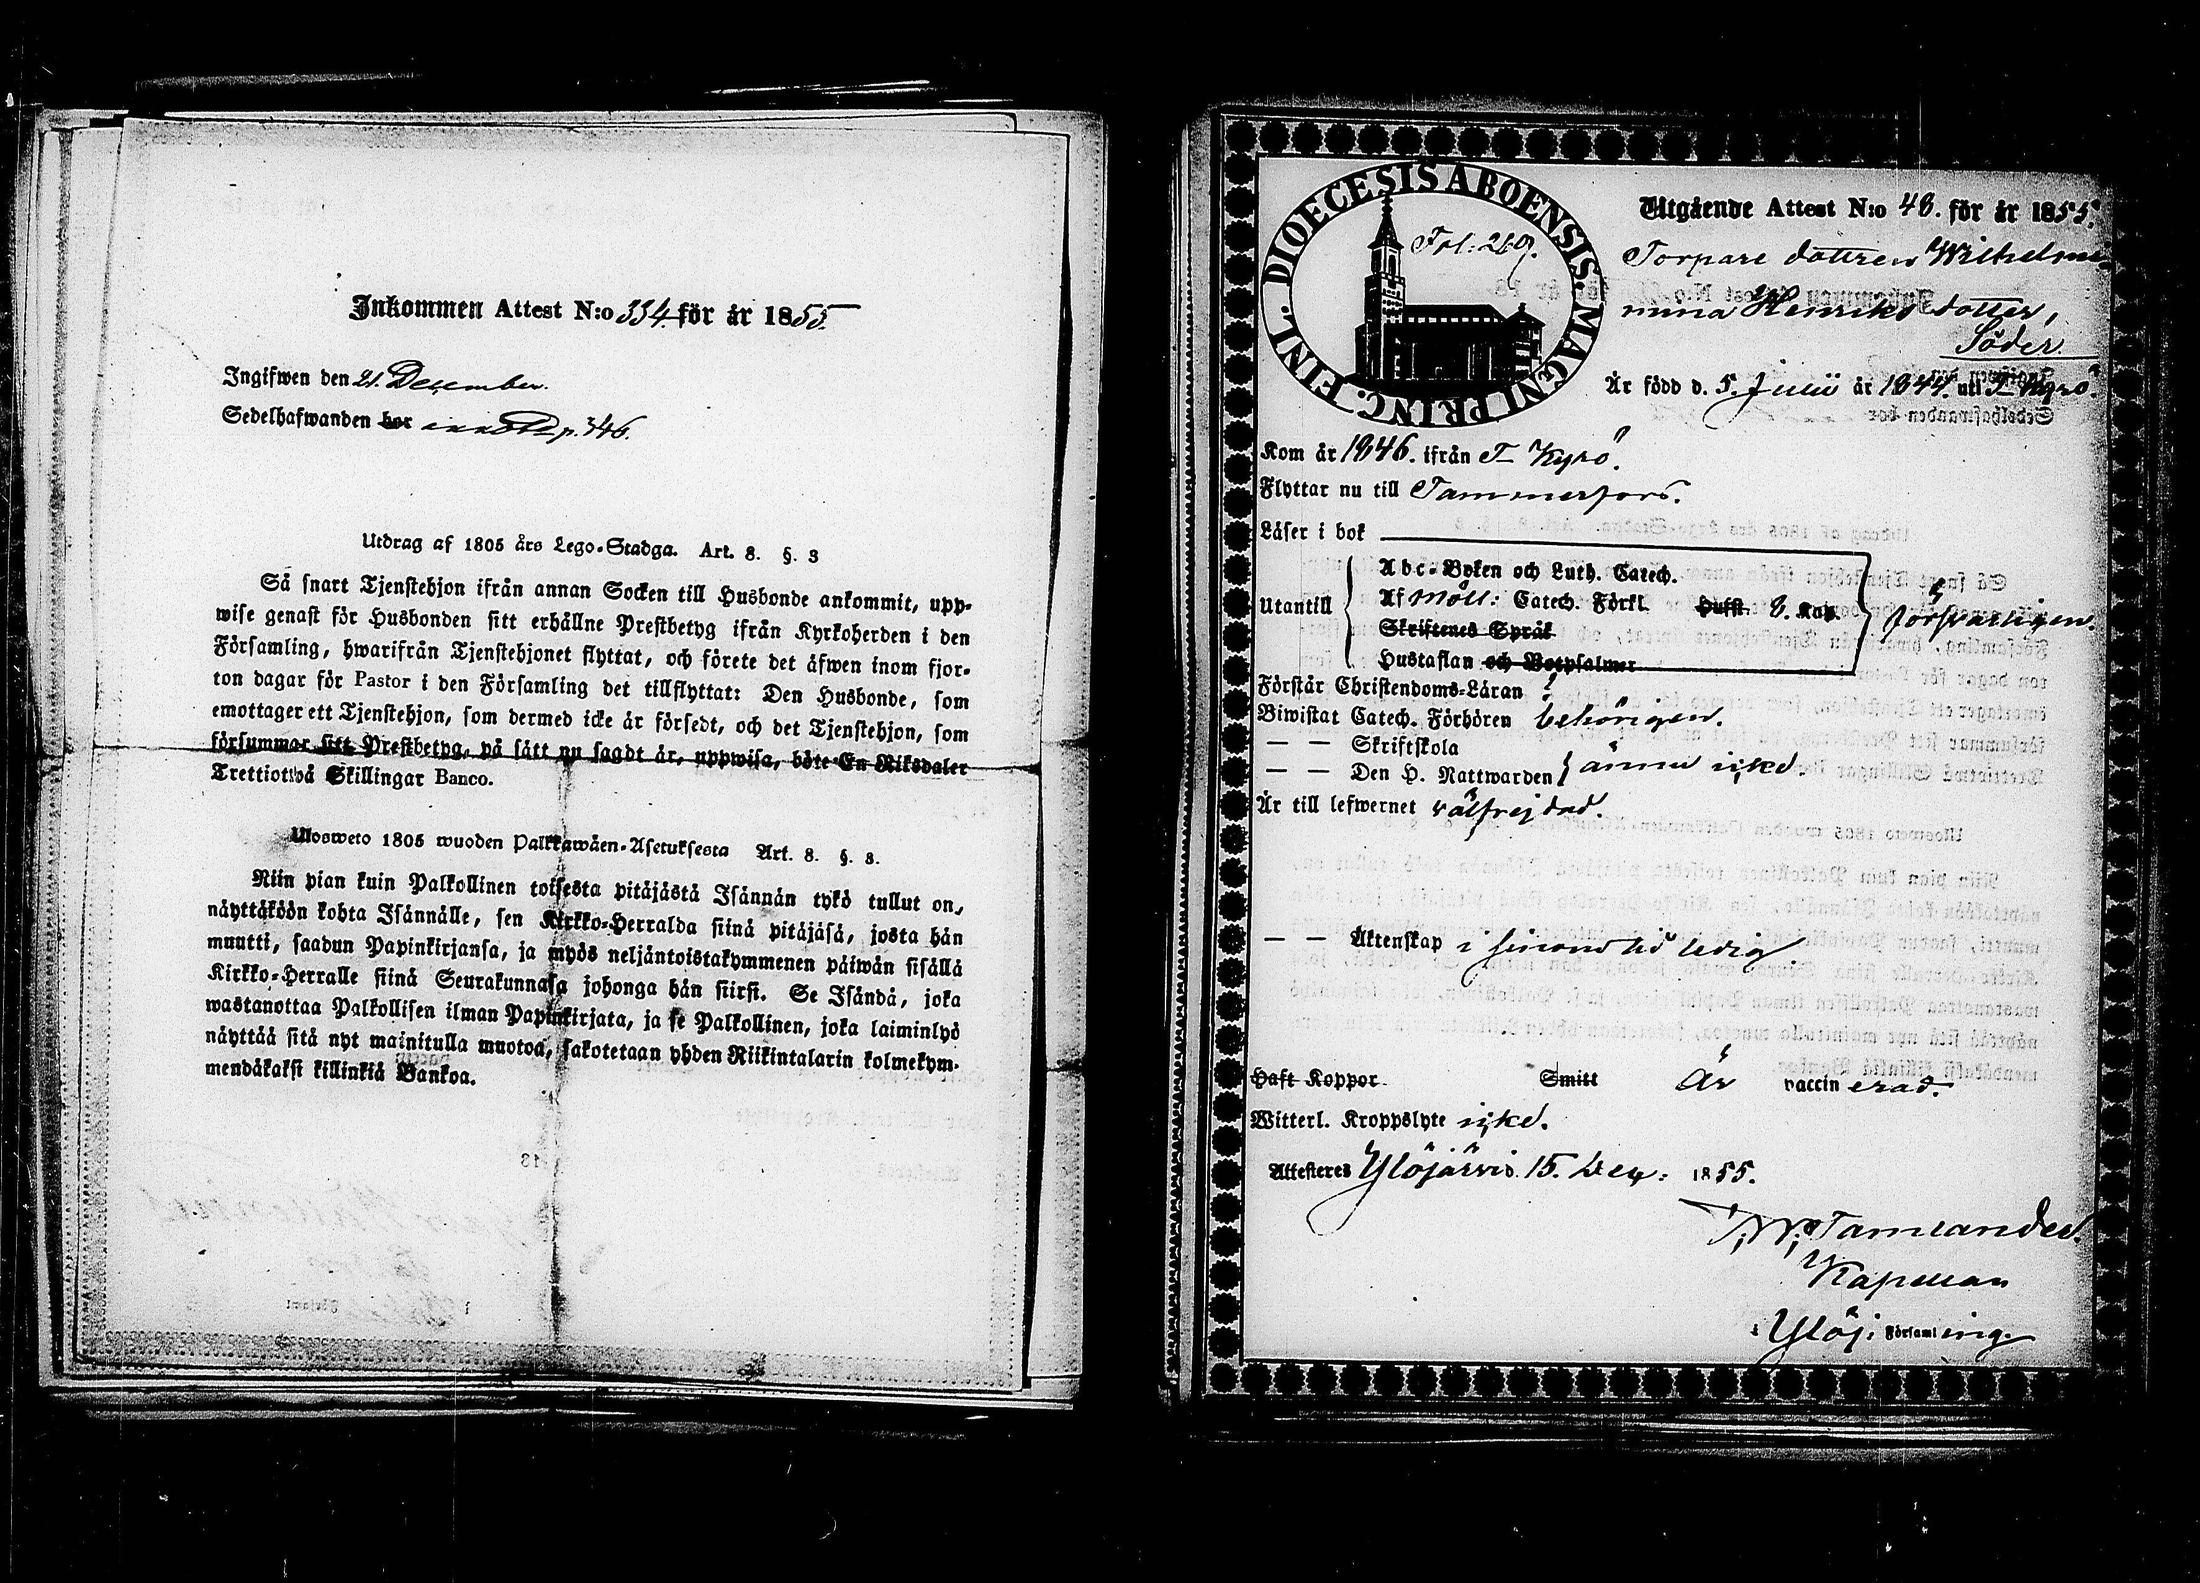 Inkommen Attest N:o 334. för år 1855.
Ingifwen den 21. December.
Sedelhafwanden bor p. 346.
Utdrag af 1805 års Lego-Stadga. Art. 8. §. 3
Så snart Tjenstehjon ifrån annan Socken till Husbonde ankommit, upp-
wise genast för Husbonden sitt erhållne Prestbetyg ifrån Kyrkoherden i den
Församling, hwarifrån Tjenstehjonet flyttat, och förete det äfwen inom fjor-
ton dagar för Pastor i den Församling det tillflyttat: Den Husbonde, som
emottager ett Tjenstehjon, som dermed icke är försedt, och det Tjenstehjon, som
försummar sitt Prestbetyg, på sätt nu sagdt är, uppwisa, böte En Riksdaler
Trettiotwå Skillingar Banco.
Ulosweto 1805 wuoden Palkkawäen-Asetuksesta Art. 8. §. 3.
Niin pian kuin Palkollinen toisesta pitäjästä Isännän tykö tullut on,
näyttäköön kohta Isännälle, sen Kirkko-Herralda siinä pitäjäsä, josta hän
muutti, saadun Papinkirjansa, ja myös neljäntoistakymmenen päiwän sisällä
Kirkko-Herralle siinä Seurakunnasa johonga hän siirsi. Se Isändä, joka
wastanottaa Palkollisen ilman Papinkirjata, ja se Palkollinen, joka laiminlyö
näyttää sitä nyt mainitulla muotoa, sakotetaan yhden Riikintalarin kolmekym-
mendäkaksi killinkiä Bankoa.
DIOECESIS ABOENSIS. MAGNI PRINC. FINL.
Fol: 269.
Utgående Attest N:o 48. för år 1855.
Torpare dottren Wilhelmi-
nna Henriksdotter,
Söder.
Är född d. 5. Junii år 1844. uti T Kyrö.
Kom år 1846. ifrån T Kyrö.
Flyttar nu till Tammerfors.
Läser i bok
Abc-Boken och Luth. Catech.
Utantill Af Möll: Catech. Förkl. Hufst. 8. Kap. försvarligen.
Skriftenes Språk
Hustaflan och Botpsalmer
Förstår Christendoms-Läran
Biwistat Catech. Förhören behörigen.
— — Skriftskola
— — Den H. Nattwarden ännu icke.
Är till lefwernet välfrejdad.
— — Äktenskap i sinom tid ledig
Haft Koppor Smitt Är vaccinerad.
Witterl. Kroppslyte icke.
Attesteras Ylöjärvi d. 15. Dec: 1855.
Tamlander.
Kapellan
i Ylöj: Församling.